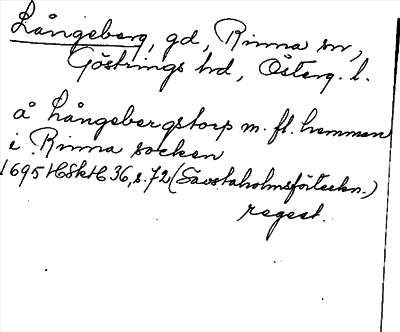 Långeberg, gd, Rinna sn,
Göstrings hd, Österg. l.
å Långebergstorp m. fl. hemman
i Rinna socken
1695 HSkH 36, s. 72 (Säbstaholmsförteckn.)
regest.